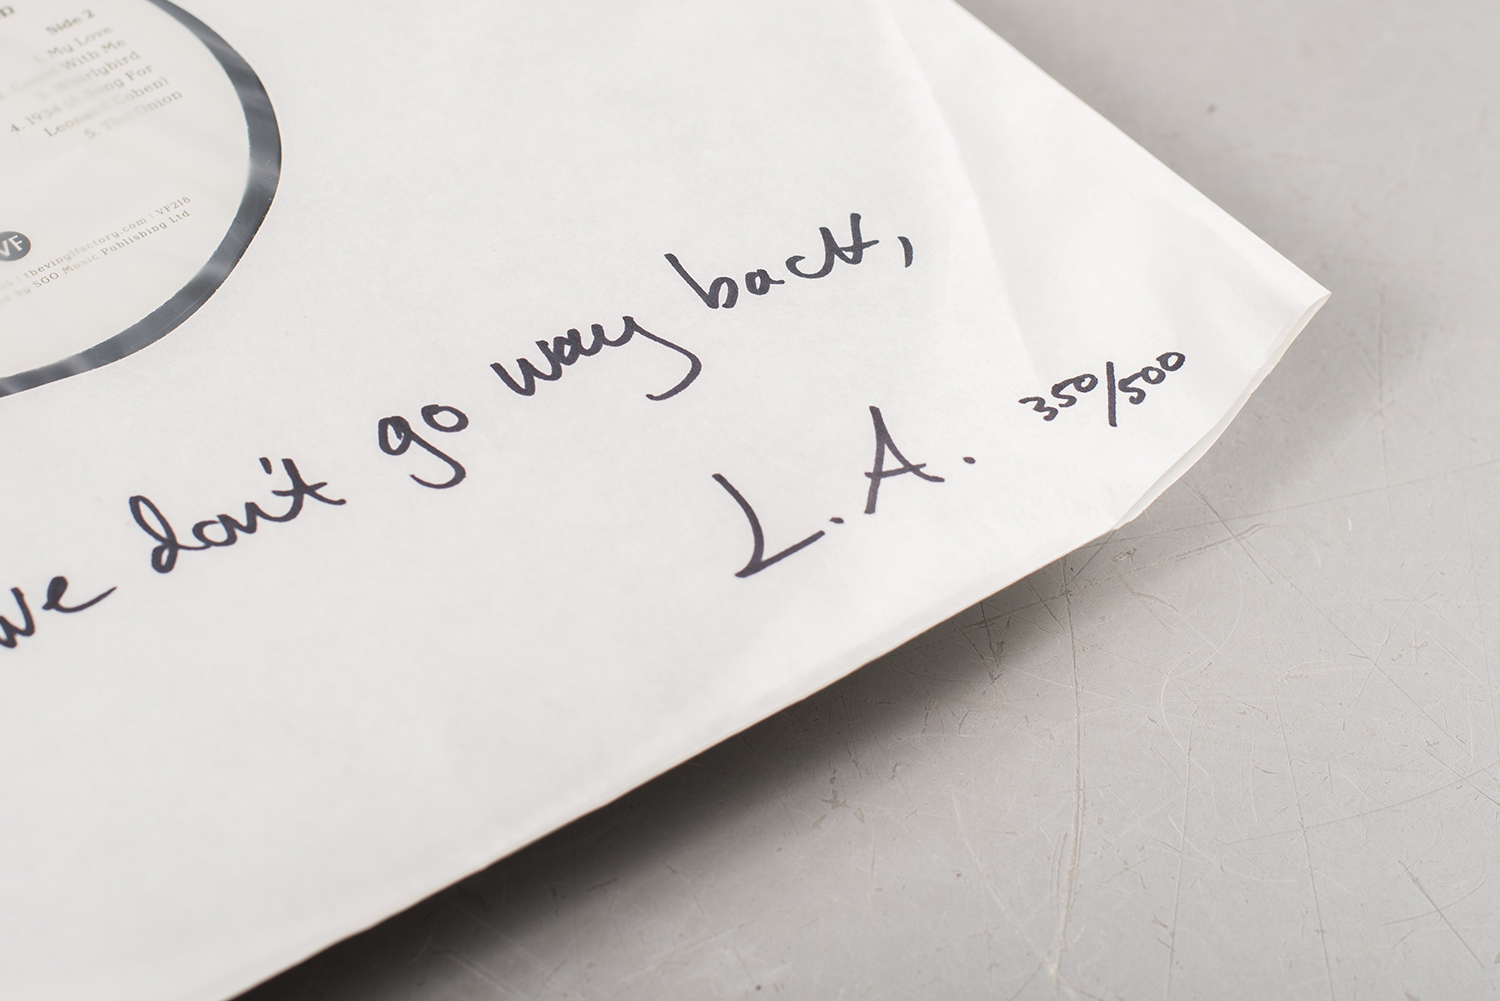 Side 2
1. My Love
With Me
4. 1934 (A Song For
Leonard Cohen)
5. The Onion
VF
thevinylfactory.com | VF218
by SGO Music Publishing Ltd
we don't go way back,
L.A. 350/500